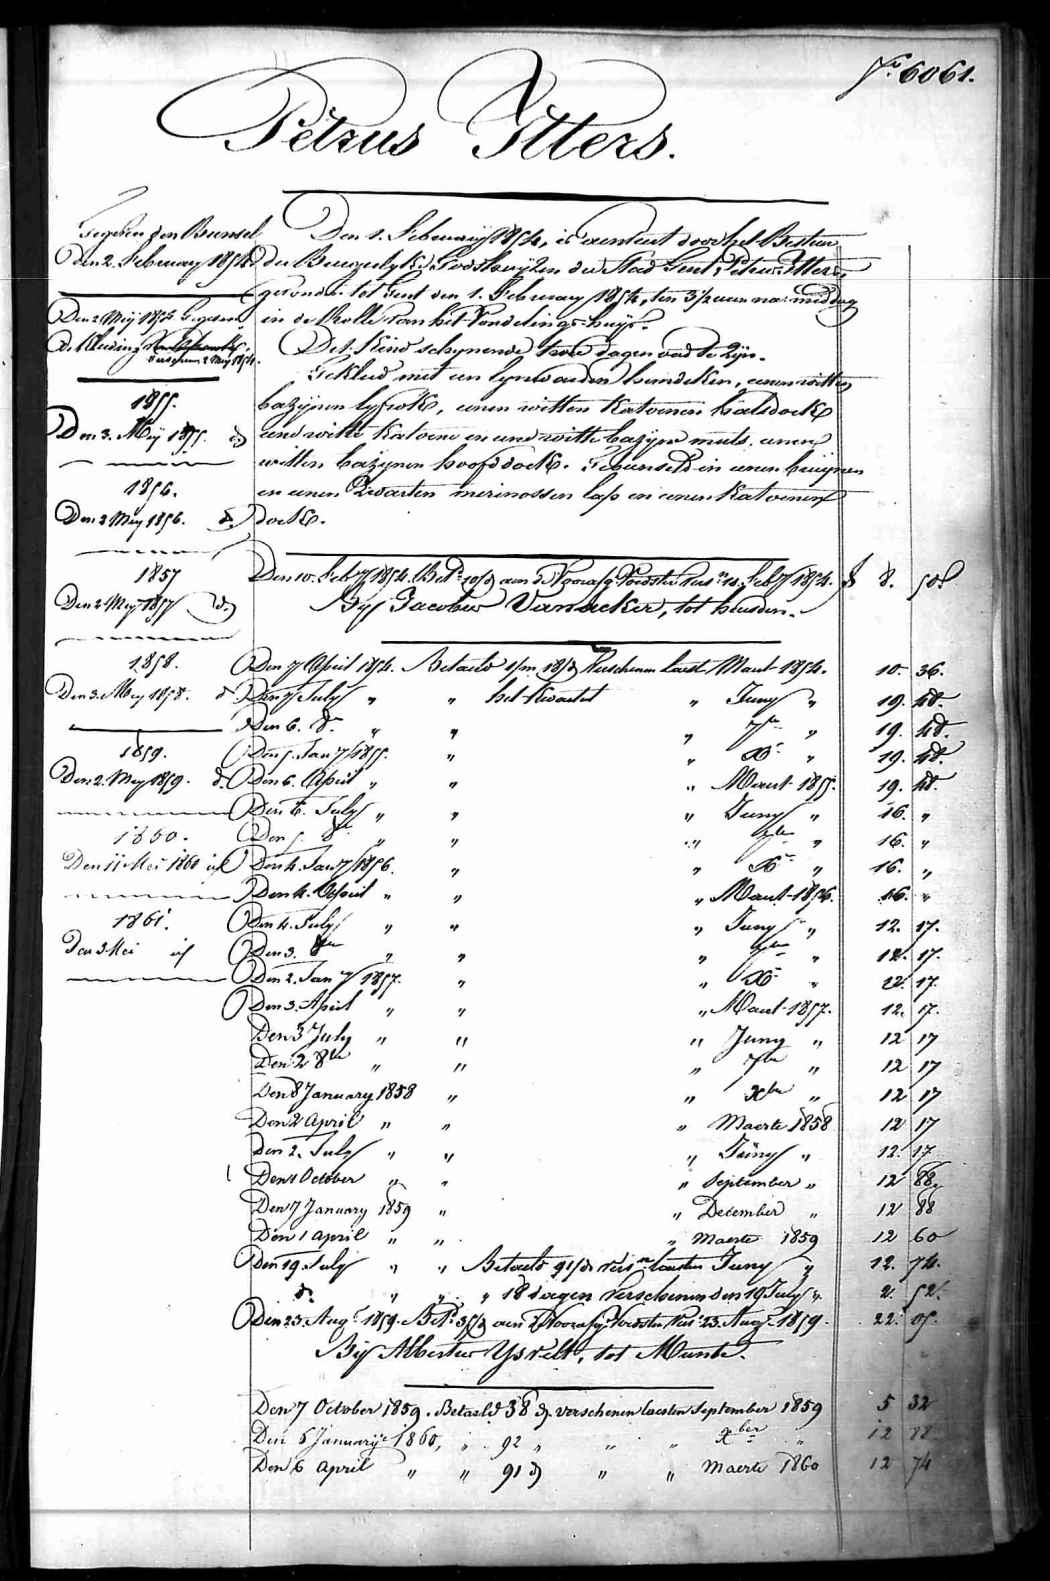 Nº 6061.
Petrus Itters.
Gegeven den Bunsel
Den 2. February 1854
Den 2 Meij 1854 Gegeven
de Kleeding
verschenen 2 Meij 1854.
1855.
Den 3. Meij 1855. d°
1856.
Den 2 Meij 1856. d°
1857
Den 2 Meij 1857 d°
1858.
Den 3. Meij 1858. d°
1859.
Den 2. Meij 1859. d°
1860.
Den 11 Mei 1860 id
1861.
Den 3 Mei id
Den 1. February 1854, is aenveert door het Bestuer
der Burgerlyke Godshuyzen der Stad Gent, Petrus Itters,
gevonden tot Gent den 1. February 1854, ten 3½ uren na middag
in de Rolle van het Vondelings-huys.
Det Kind schynende twee dagen oud te zyn.
Gekleed met een lynwaeden hemdeken, eenen witten
bazynen lyfrok, eenen witten katoenen halsdoek
eene witte katoene en eene witte bazyne muts, eenen
witten bazynen hoofddoek. Gebunseld in eenen bruynen
en eenen zwarten merinossen lap en eenen katoenen
doek.
Den 10. Feby 1854. Betd. aen de Voorsg. Voedster Feby 1854. f 8. 50
By Jacobus Vanacker, tot heusden.
Den 7 April 1854. Betaeld 1/m 18/d Verschenen laest Maert 1854. 10. 36.
Den 7 July " " het kwartael " Juny " 19. 48.
Den 6. 8r " " " 7bre " 19. 48.
Den 5. Jany 1855. " " Xr " 19. 48.
Den 6. April " " " Maert 1855. 19. 48.
Den 6. July " " " Juny " 16. "
Den 5. 8r " " " 7bre " 16. "
Den 4. Jany 1856. " " Xr " 16. "
Den 4. April " " " Maert 1856. 16. "
Den 4. July " " " Juny " 12. 17.
Den 3. 8bre " " " 7bre " 12. 17.
Den 2. Jany 1857. " " Xr " 12. 17.
Den 3. April " " " Maert 1857. 12. 17.
Den 3 July " " " Juny " 12 17
Den 2 8bre " " " 7bre " 12 17
Den 8 January 1858 " " Xbre " 12 17
Den 2 April " " " Maerte 1858 12 17
Den 2. July " " " Juny " 12. 17
Den 1 October " " " September " 12 88
Den 7 January 1859 " " December " 12 88
Den 1 April " " " Maerte 1859 12 60
Den 19 July " " Betaeld 91/d Versn laesten Juny " 12. 74.
d° " " " 18 dagen Verschenen den 19 July " 2. 52.
Den 23 Augt 1859. Betd. 35/d aen de Voorsg. Voedster 23 Augt 1859. 22. 05.
By Albertus Ysvelt, tot Munte.
Den 7 October 1859. Betaeld 38 d verschenen laesten September 1859 5 32
Den 6 January 1860, " 92 " " " Xber " 12 88
Den 6 April " " 91 d " " Maerte 1860 12 74